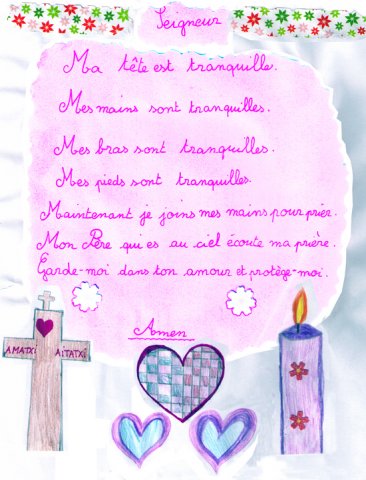 Seigneur
Ma tête est tranquille.
Mes mains sont tranquilles.
Mes bras sont tranquilles.
Mes pieds sont tranquilles.
Maintenant je joins mes mains pour prier.
Mon Père qui es au ciel écoute ma prière.
Garde-moi dans ton amour et protège-moi.
Amen
AMATXI AITATXI